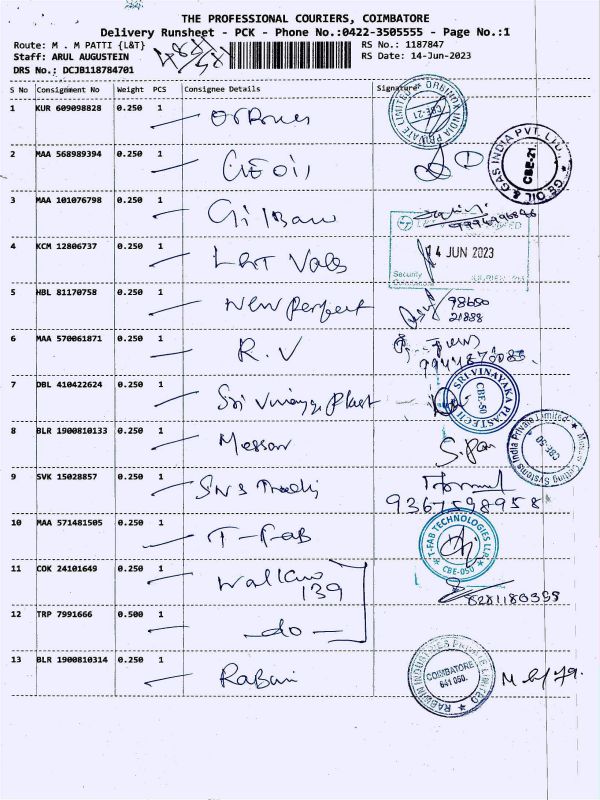 THE PROFESSIONAL COURIERS, COIMBATORE
Delivery Runsheet - PCK - Phone No.:0422-3505555 - Page No.:1
Route: M . M PATTI {L&T}
RS No.: 1187847
Staff: ARUL AUGUSTEIN
RS Date: 14-Jun-2023
DRS No.: DCJB118784701
S No Consignment No Weight PCS Consignee Details Signature
1 KUR 609098828 0.250 1
ORBINDA INDIA PRIVATE LIMITED CBE-21
2 MAA 568989394 0.250 1 GE Oil
GE OIL & GAS INDIA PVT. LTD. CBE-21.
3 MAA 101076798 0.250 1 Gilbarc
9994996846
4 KCM 12806737 0.250 1 L&T Valve
14 JUN 2023
Security
5 HBL 81170758 0.250 1 New Perfect
98650
21888
6 MAA 570061871 0.250 1 R.V
7 DBL 410422624 0.250 1 Sri Vinayaga Plast
SRI VINAYAKA PLASTECH CBE-50
8 BLR 1900810133 0.250 1 Messar
Cutting Systems India Private Limited CBE-50
9 SVK 15028857 0.250 1 SNS
9367598958
10 MAA 571481505 0.250 1 T-Fab
T-FAB TECHNOLOGIES LLP. CBE-050
11 COK 24101649 0.250 1
139
12 TRP 7991666 0.500 1 -do-
8281180358
13 BLR 1900810314 0.250 1 Rabwin
RABWIN INDUSTRIES PRIVATE LIMITED COIMBATORE 641 050.